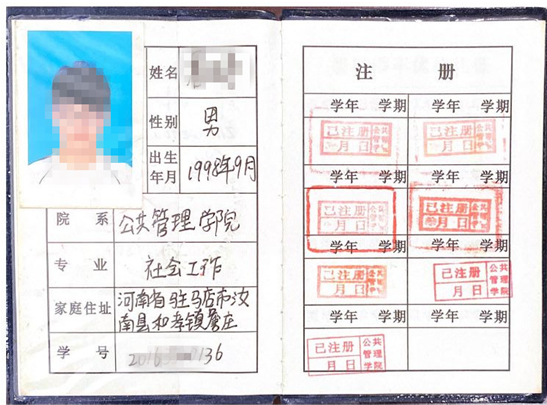 姓名
性别 男
出生年月 1998年9月
院 系 公共管理学院
专 业 社会工作
家庭住址 河南省驻马店市汝
南县和孝镇詹庄
学 号 2016 136
注 册
学年 学期 学年 学期
已注册 月 日 公共管理学院 已注册 月 日 公共管理学院
学年 学期 学年 学期
已注册 月 日 公共管理学院 已注册 月 日 公共管理学院
学年 学期 学年 学期
已注册 月 日 公共管理学院 已注册 月 日 公共管理学院
学年 学期 学年 学期
已注册 月 日 公共管理学院